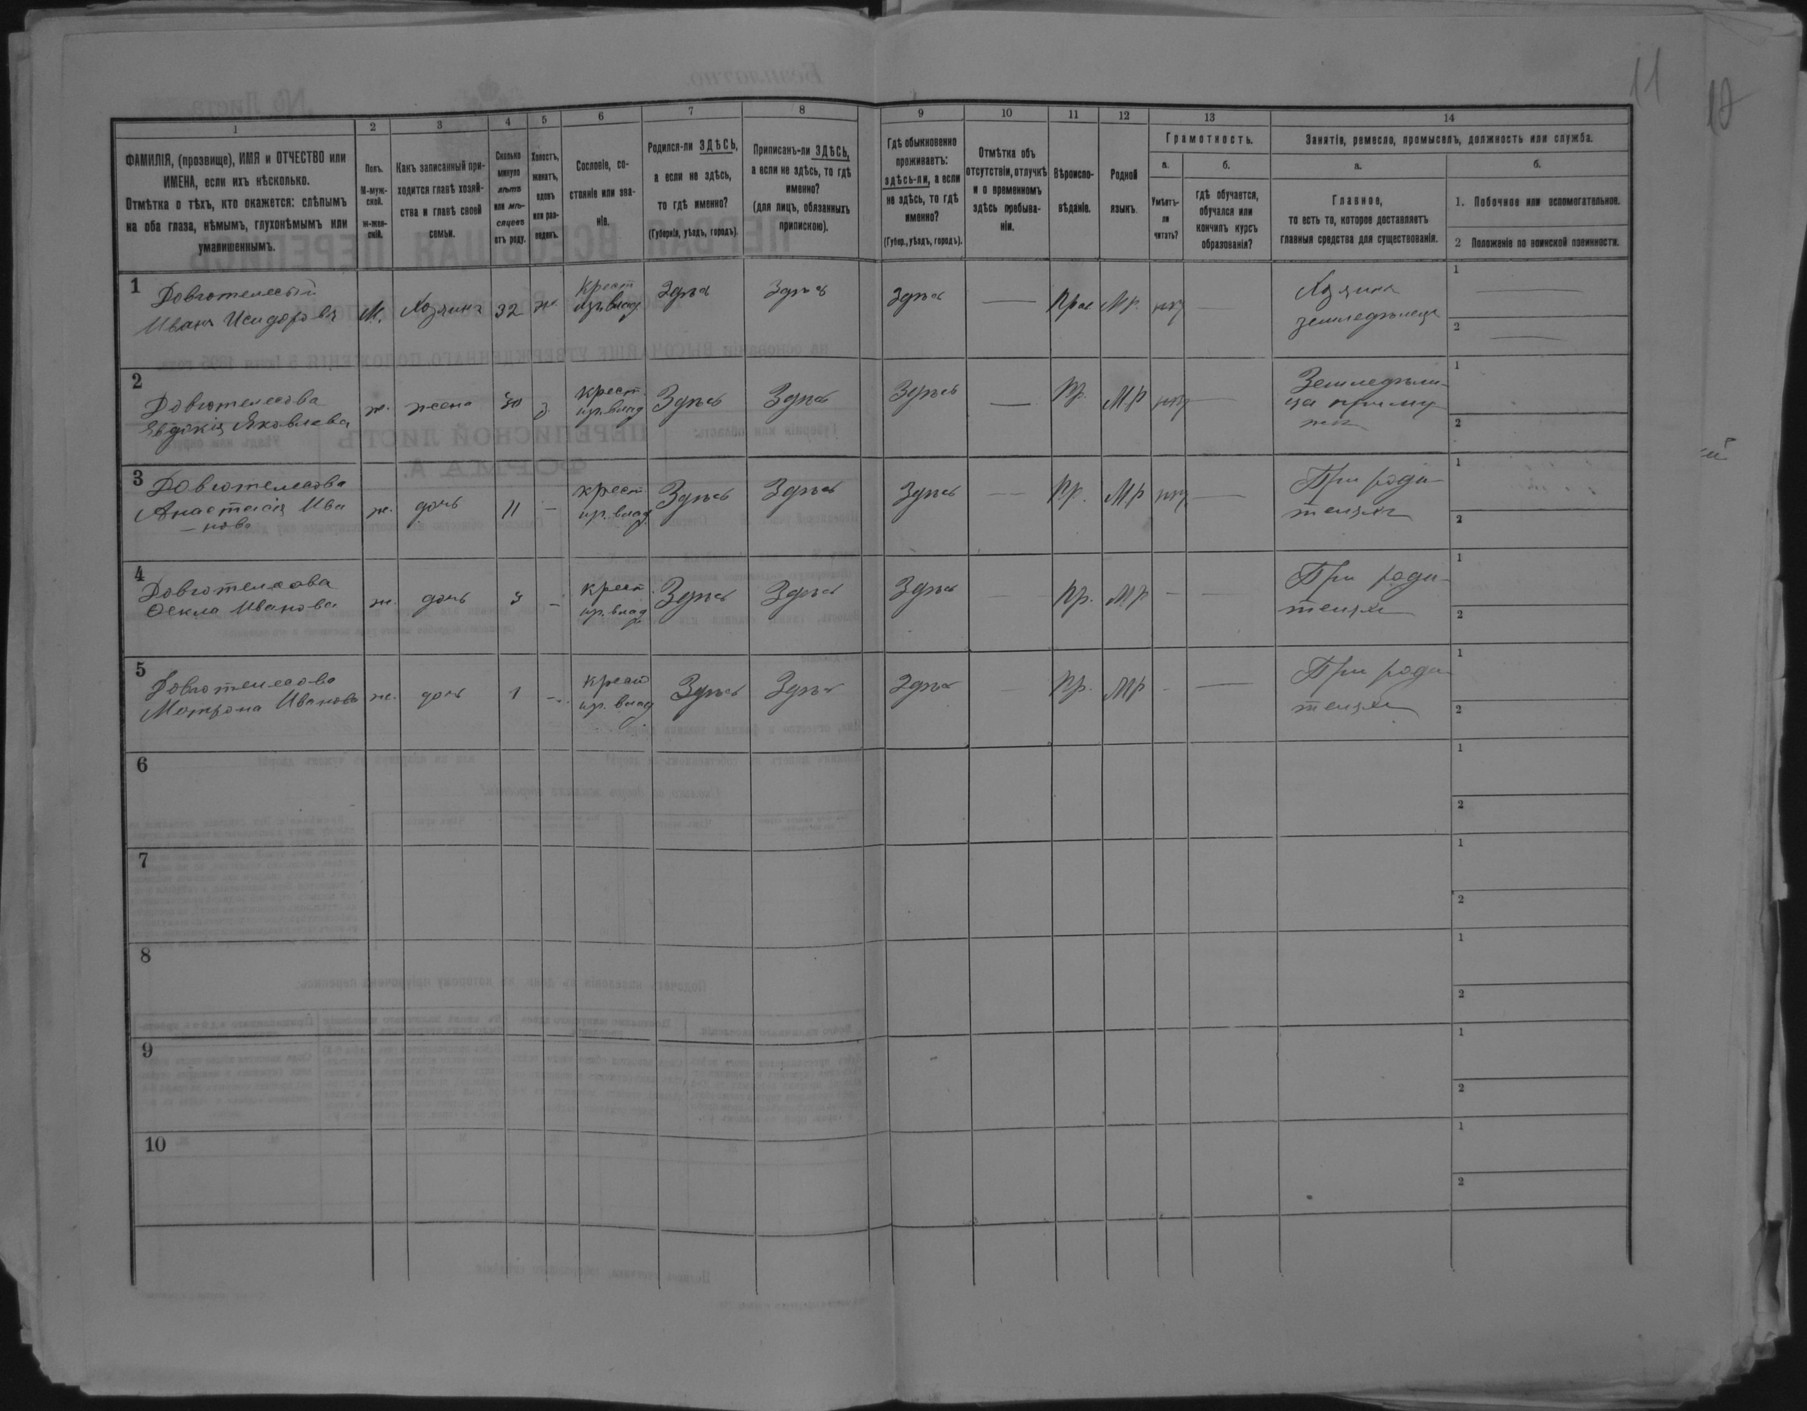 11
10
1
2
3
4
5
6
7
8
9
10
11
12
13
14
ФАМИЛІЯ, (прозвище), ИМЯ и ОТЧЕСТВО или
ИМЕНА, если ихъ нѣсколько.
Отмѣтка о тѣхъ, кто окажется: слѣпымъ
на оба глаза, нѣмымъ, глухонѣмымъ или
умалишеннымъ.
Полъ.
М-муж-
ской.
ж-жен-
скій.
Какъ записанный при-
ходится главѣ хозяй-
ства и главѣ своей
семьи.
Сколько
минуло
лѣтъ
или мѣ-
сяцевъ
отъ роду.
Холостъ,
женатъ,
вдовъ
или раз-
веденъ.
Сословіе, со-
стояніе или зва-
ніе.
Родился-ли ЗДѢСЬ,
а если не здѣсь,
то гдѣ именно?
(Губернія, уѣздъ, городъ).
Приписанъ-ли ЗДѢСЬ,
а если не здѣсь, то гдѣ
именно?
(для лицъ, обязанныхъ
припискою).
Гдѣ обыкновенно
проживаетъ:
здѣсь-ли, а если
не здѣсь, то гдѣ
именно?
(Губер., уѣздъ, городъ).
Отмѣтка объ
отсутствіи, отлучкѣ
и о временномъ
здѣсь пребыва-
ніи.
Вѣроиспо-
вѣданіе.
Родной
языкъ.
Грамотность.
а.
б.
Умѣетъ-
ли
читать?
Гдѣ обучается,
обучался или
кончилъ курсъ
образованія?
Занятія, ремесло, промыселъ, должность или служба.
а.
б.
Главное,
то есть то, которое доставляетъ
главныя средства для существованія.
1. Побочное или вспомогательное.
2 Положеніе по воинской повинности.
1
Иванъ Исидоровъ
М.
Хозяинъ
32
ж
крест
Здѣсь
Здѣсь
Здѣсь
Прав
Мр.
нѣт
Хозяинъ
земледѣлецъ
1
2
2
Евдокія Яковлева
ж.
жена
30
з
крест.
пр. влад
Здѣсь
Здѣсь
Здѣсь
Пр.
Мр
нѣт
1
2
3
Анастасія Ива
нова
ж.
дочь
11
крест
пр. влад
Здѣсь
Здѣсь
Здѣсь
Пр.
Мр
нѣт
При роди-
теляхъ
1
2
4
Ѳекла Иванова
ж.
дочь
3
крест
пр. влад
Здѣсь
Здѣсь
Здѣсь
Пр.
Мр
При роди-
теляхъ
1
2
5
Мотрона Иванова
ж.
дочь
1
крест
пр. влад
Здѣсь
Здѣсь
Здѣсь
Пр.
Мр
При роди-
теляхъ
1
2
6
1
2
7
1
2
8
1
2
9
1
2
10
1
2